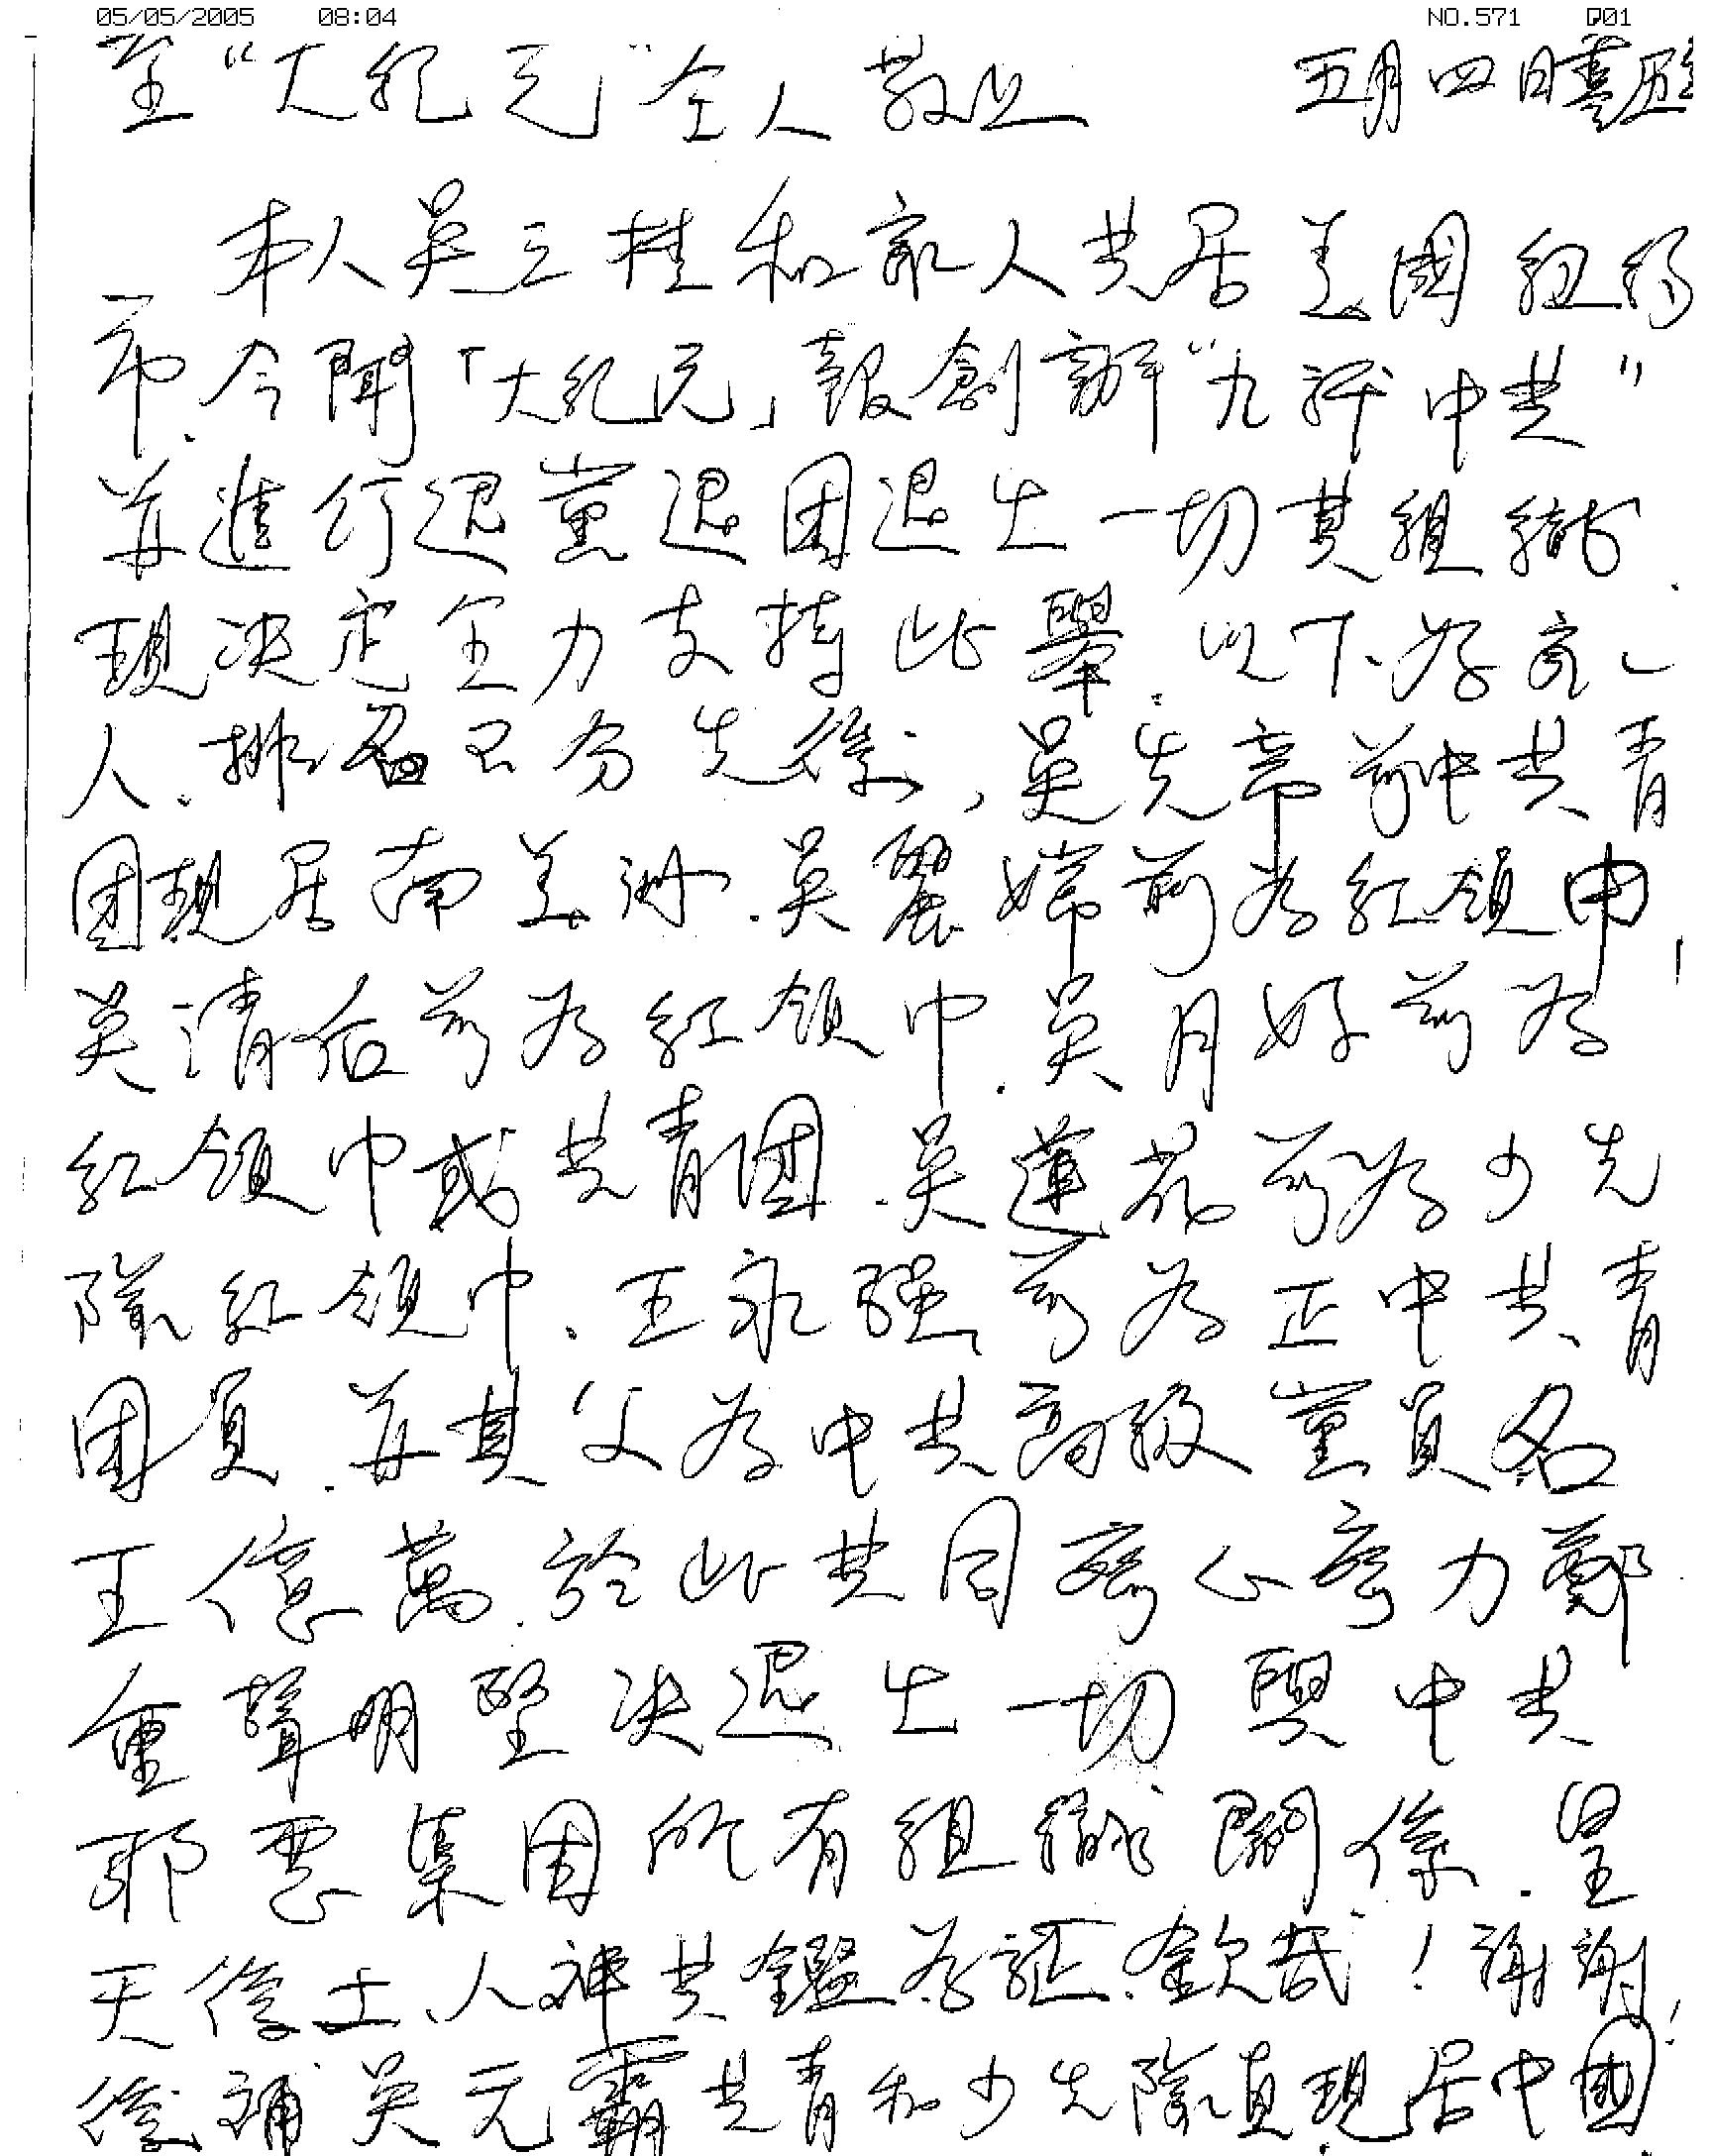 05/05/2005 08:04 NO.571 P01
至“大紀元”全人敬上 五月四日
本人吳三桂和家人共居美國紐約
市.今聞「大紀元」報創辦“九評中共”
并進行退黨退团退出一切其組織.
現決定全力支持此舉.以下为家
人.排名不分先後,吴先帝前中共青
团現居南美洲.吴麗嫦前为紅領巾,
吴清佑前为紅領巾.吴月好前为
紅領巾或共青团.吴蓮花前为少先
隊紅領巾.王永强前为正中共青
团員.并其父为中共高級黨員名
王億萬.於此共同齊心齊力鄭
重聲明堅决退出一切與中共
邪惡集团所有組織関係.皇
天後土、人神共鑑为証.欽哉!謝謝!
後補吴元霸共青和少先隊員.現居中國.